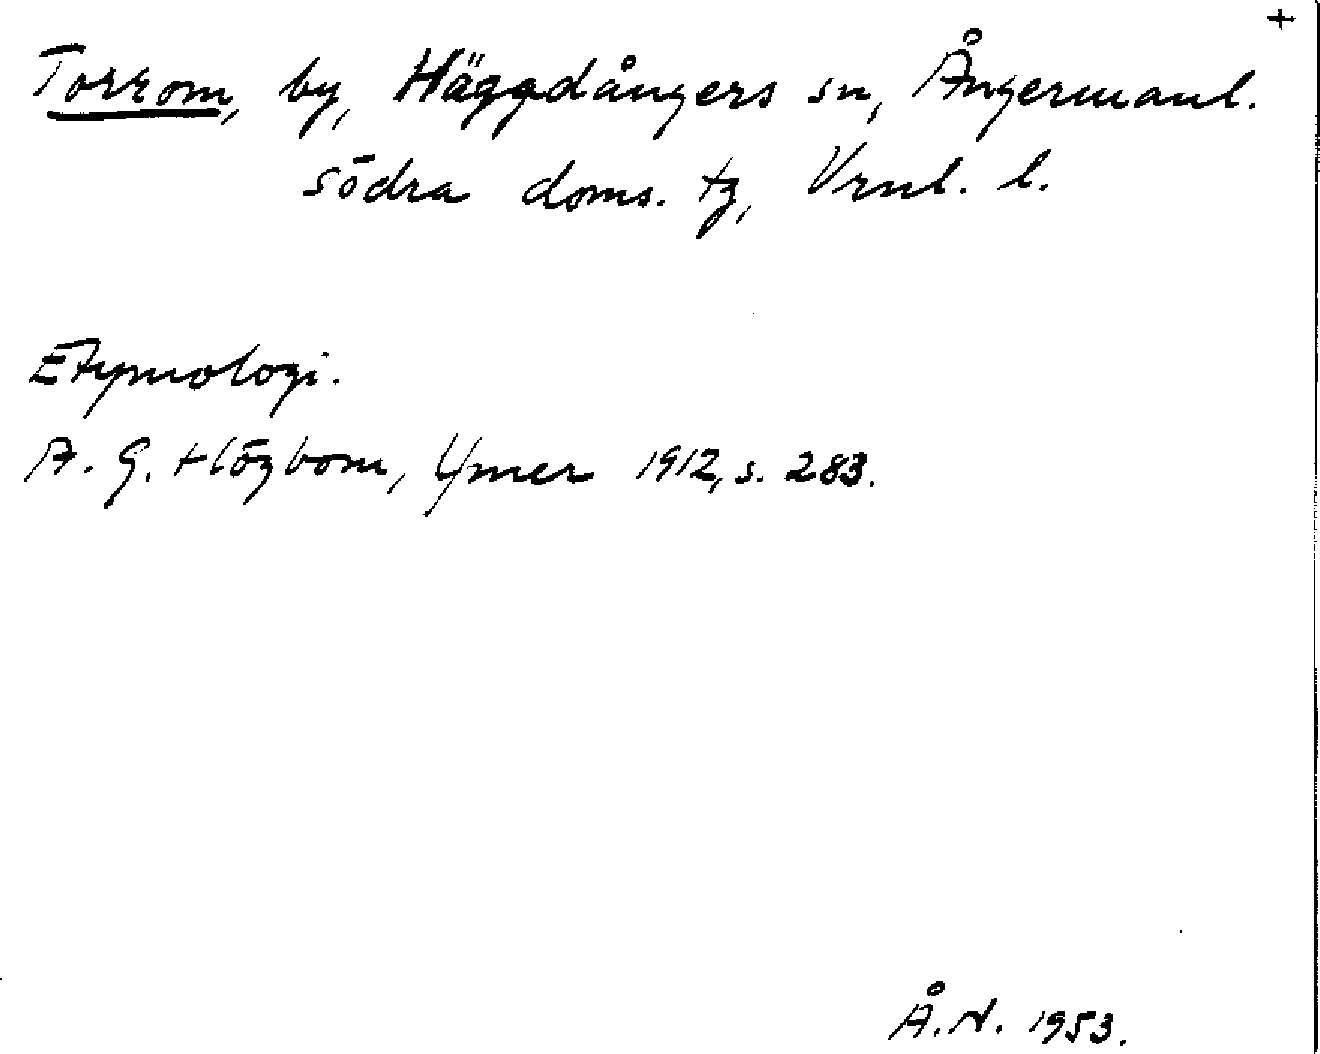 +
Torrom, by, Häggdångers sn, Ångermanl.
södra doms. tg, Vrnl. l.
Etymologi.
A. G. Högbom, Ymer 1912, s. 283.
Å. N. 1953.